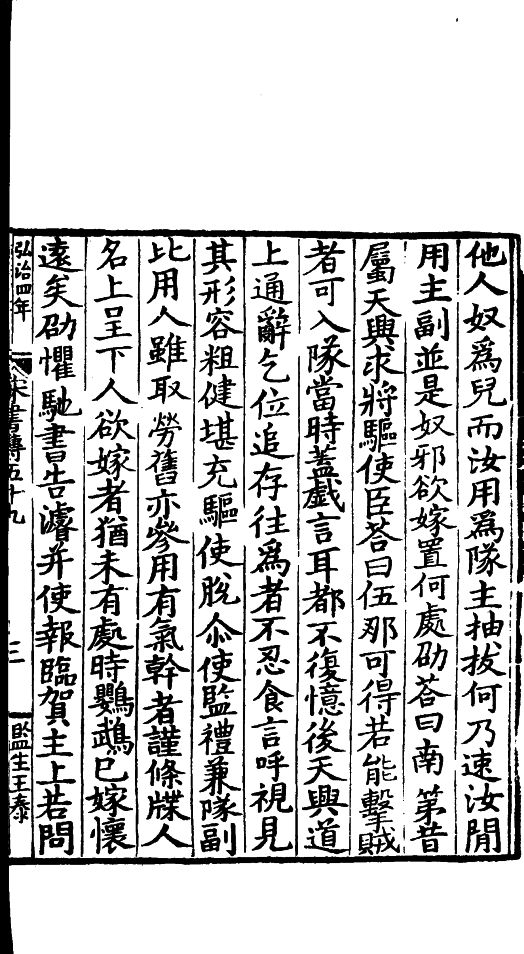 他人奴爲兒而汝用爲隊主抽拔何乃速汝閒
用主副並是奴邪欲嫁置何處劭荅曰南第昔
屬天興求將驅使臣荅曰伍那可得若能擊賊
者可入隊當時蓋戲言耳都不復憶後天興道
上通辭乞位追存往爲者不忍食言呼視見
其形容粗健堪充驅使脫尒使監禮兼隊副
比用人雖取勞舊亦參用有氣幹者謹條牒人
名上呈下人欲嫁者猶未有處時鸚鵡已嫁懷
遠矣劭懼馳書告濬并使報臨賀主上若問
弘治四年 宋書傳五十九 三 監生王泰